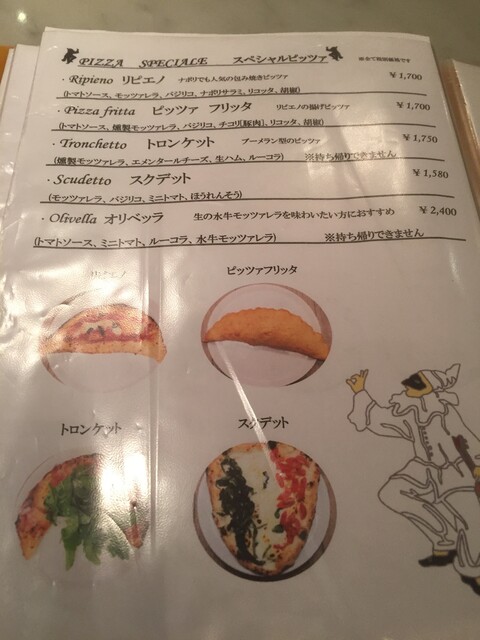 PIZZA SPECIALE スペシャルピッツァ
・Ripieno リピエノ ナポリでも人気の包み焼きピッツァ ￥1,700
(トマトソース、モッツァレラ、バジリコ、ナポリサラミ、リコッタ、胡椒)
・Pizza fritta ピッツァ フリッタ リピエノの揚げピッツァ ￥1,700
(トマトソース、燻製モッツァレラ、バジリコ、チコリ[豚肉]、リコッタ、胡椒)
・Tronchetto トロンケット ブーメラン型のピッツァ ￥1,750
(燻製モッツァレラ、エメンタールチーズ、生ハム、ルーコラ) ※持ち帰りできません
・Scudetto スクデット ￥1,580
(モッツァレラ、バジリコ、ミニトマト、ほうれんそう)
・Olivella オリベッラ 生の水牛モッツァレラを味わいたい方におすすめ ￥2,400
(トマトソース、ミニトマト、ルーコラ、水牛モッツァレラ) ※持ち帰りできません
リピエノ ピッツァフリッタ
トロンケット スクデット